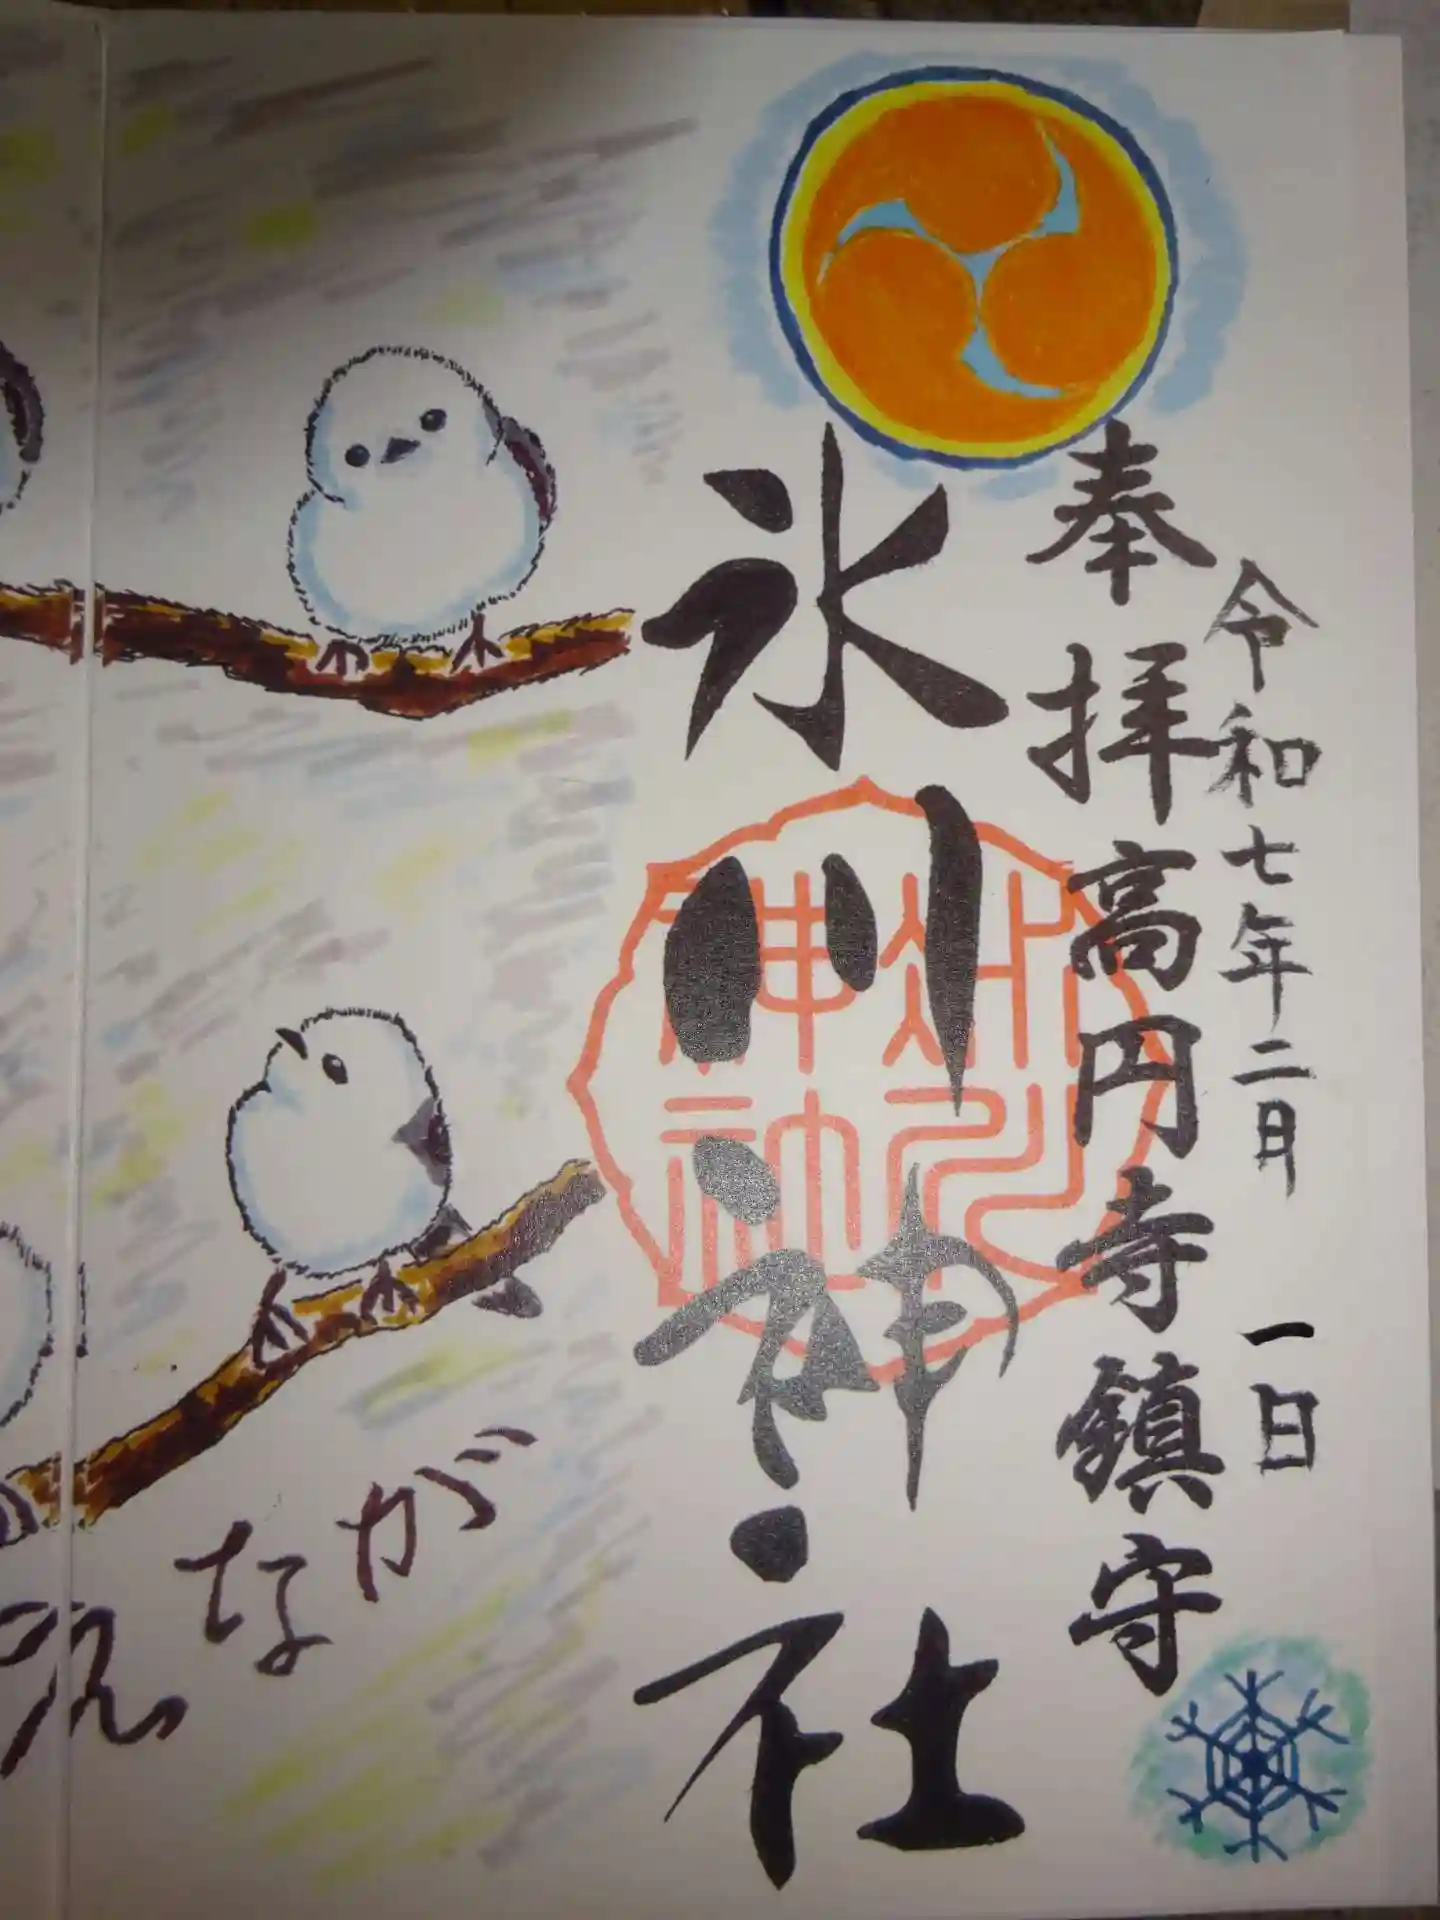 令和七年二月一日
奉拝 高円寺鎮守
氷川神社
氷川神社
なが